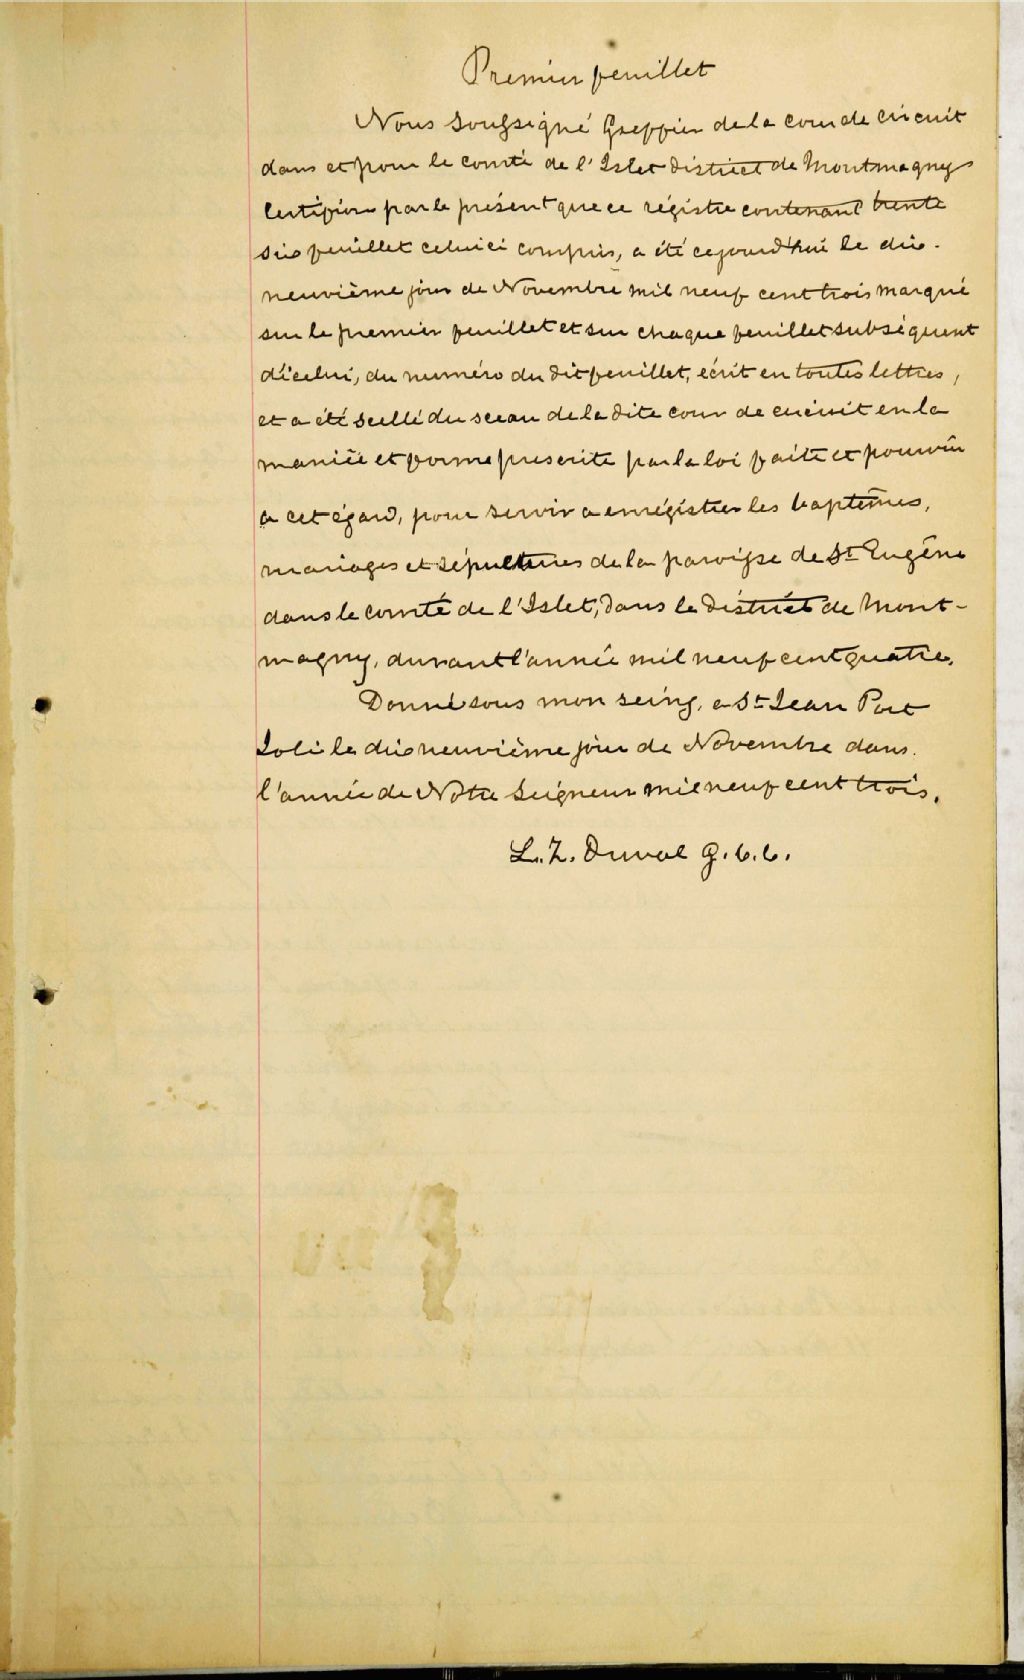 Premier feuillet
Nous soussigné Greffier de la cour de circuit
dans et pour le comté de l'Islet district de Montmagny
Certifion par le présent que ce régistre contenant trente
six feuillet celui ci compris, a été cejourd'hui le dix-
neuvième jour de Novembre mil neuf cent trois marqué
sur le premier feuillet et sur chaque feuillet subséquent
d'icelui, du numéro du dit feuillet, écrit en toutes lettres,
et a été scellé du sceau de la dite cour de circuit en la
manière et forme prescrite par la loi faite et pourvu
a cet égard, pour servir a enrégistrer les baptêmes,
mariages et sépultures de la paroisse de St Eugène
dans le comté de l'Islet, dans le district de Mont-
magny, durant l'année mil neuf cent quatre.
Donné sous mon seing, a St Jean Port
Joli le dix neuvième jour de Novembre dans
l'année de Notre Seigneur mil neuf cent trois.
L. Z. Duval G. C. C.